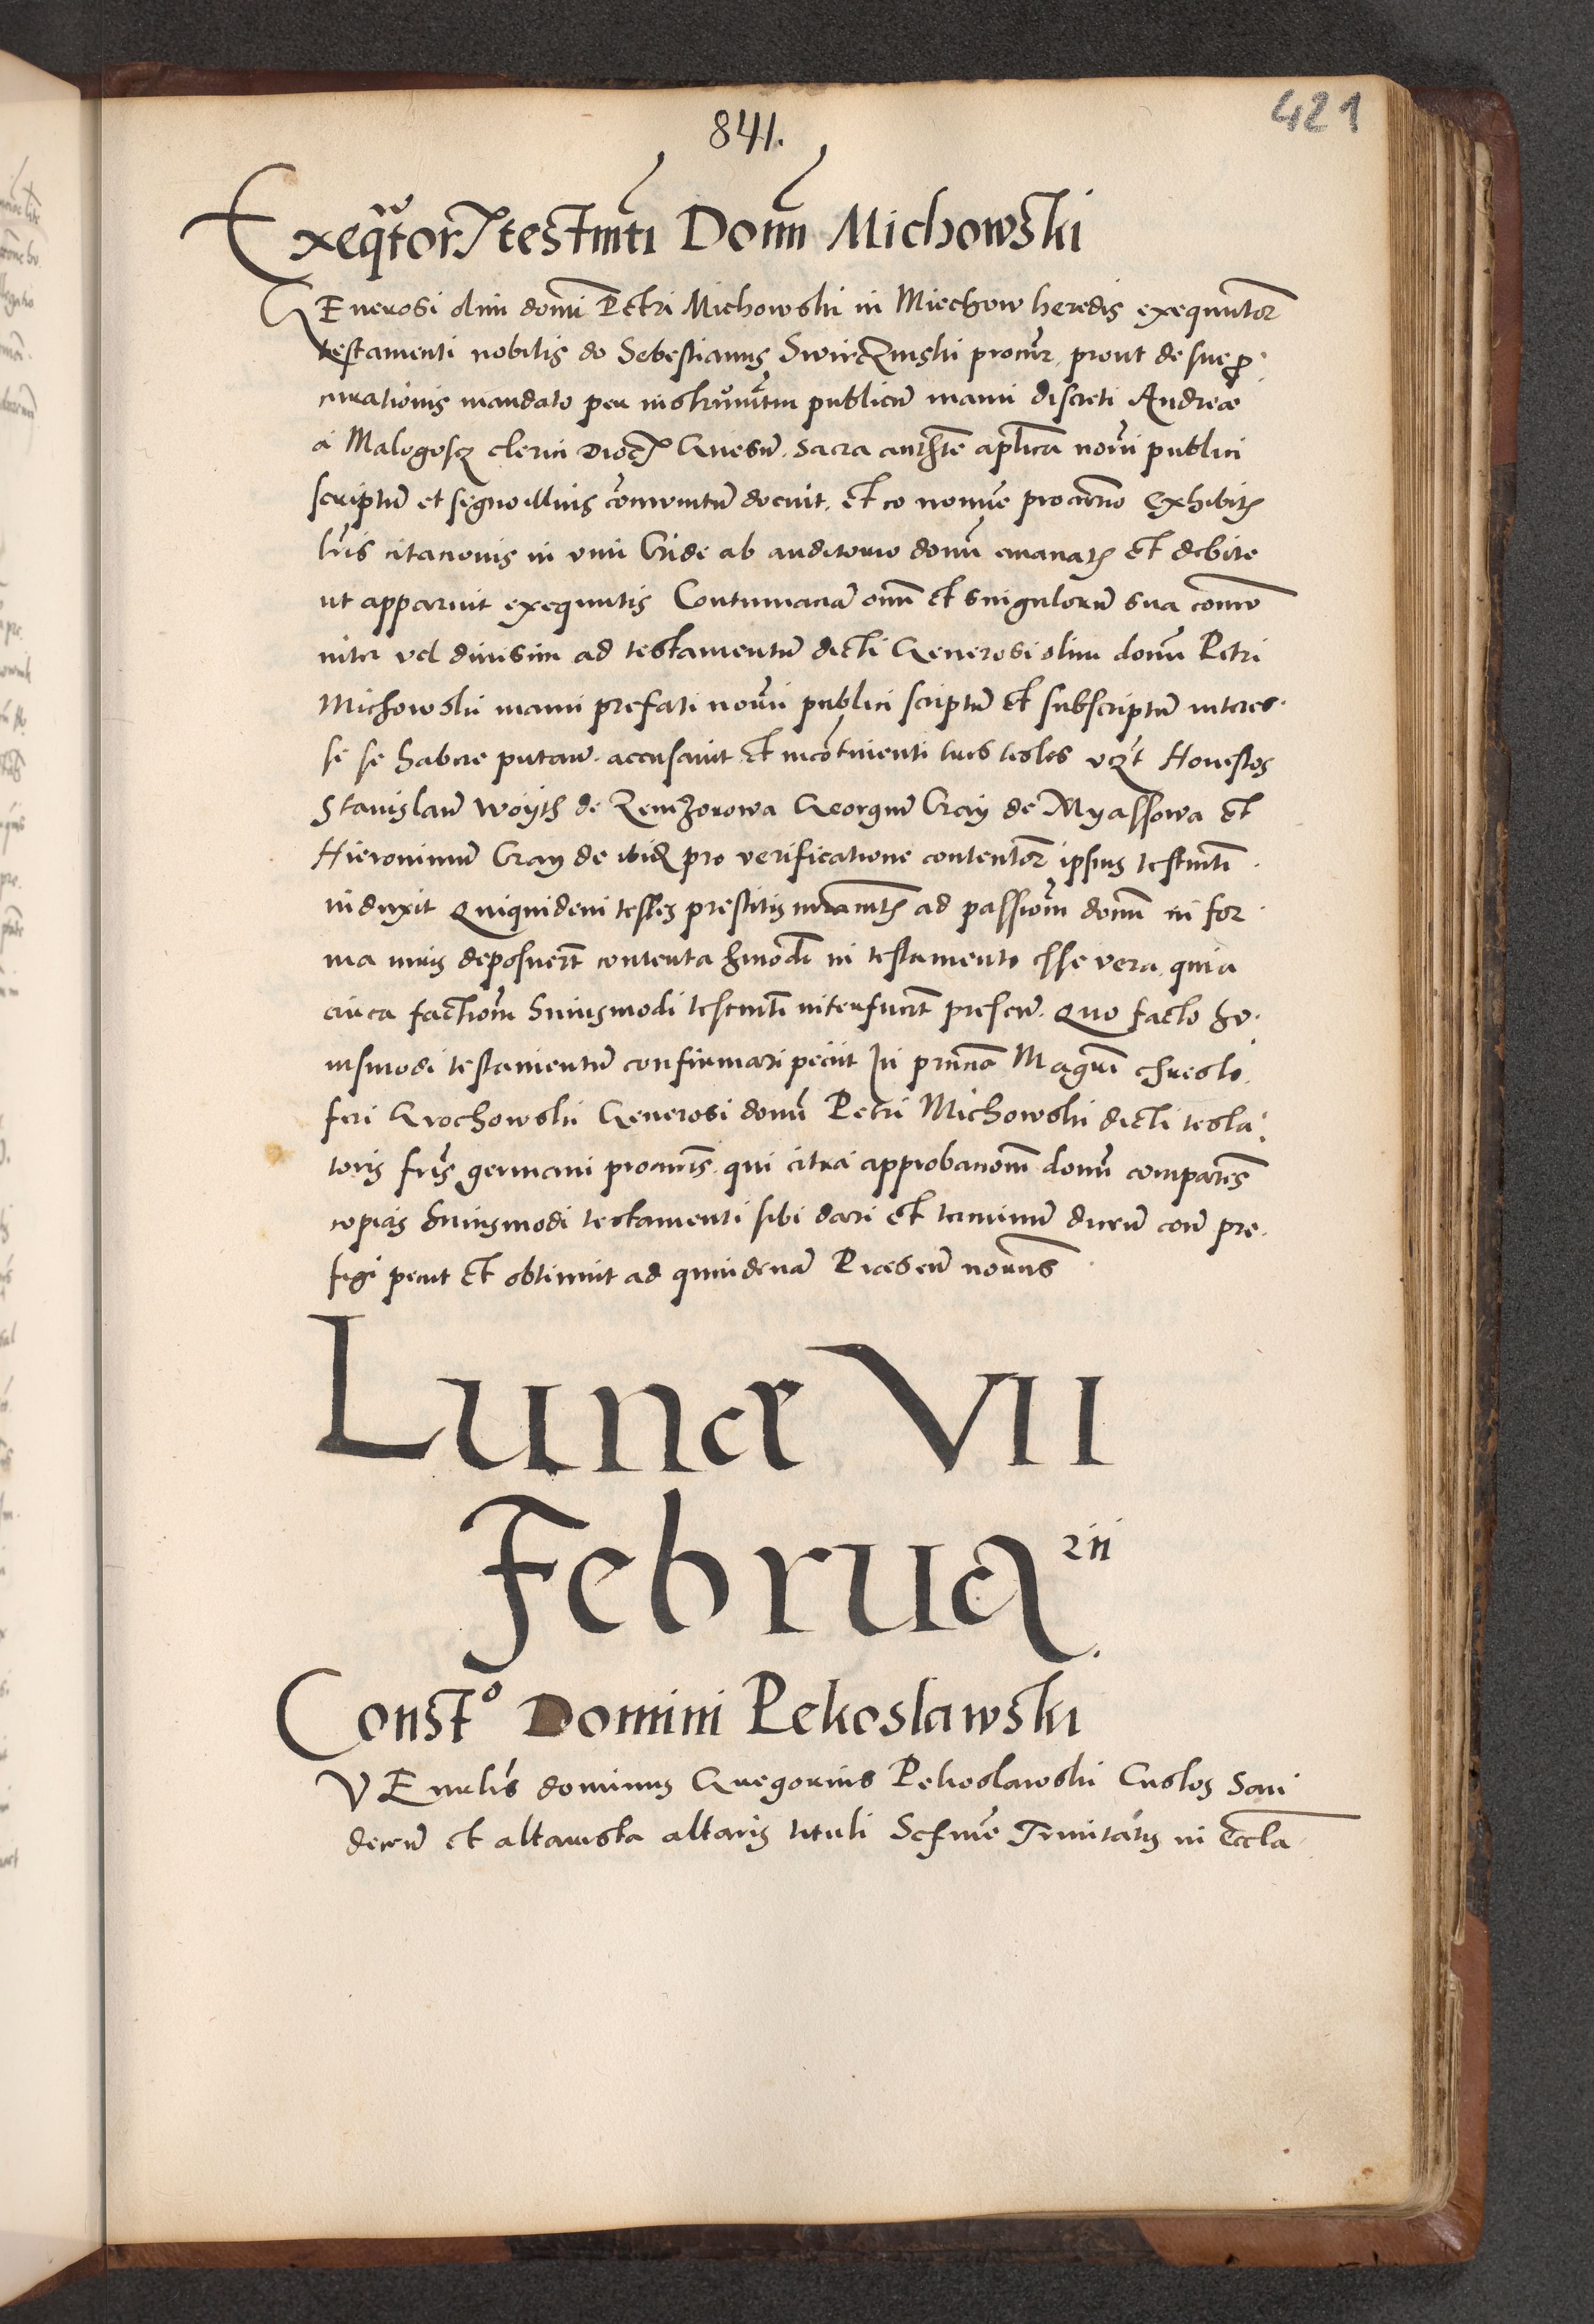 421
841.
Exeqͣtorꝭ testm̄ti Domī Michowski
GEnerosi olim domī Petri Michowski in Miechow heredis exequutor̄
testamenti nobilis do Sebestianus SwirCzinski procur̄. prout de sue ꝓ
curationis mandato per instrum̄tm publicū manu discreti Andreæ
à Malogosz clerici Diocꝭ Gnesn̄. sacra auth̄te ap̄lica notrī publici
scriptū et segno illius com̄unitū docuit. et eo nomīe procur̄io Exhibitꝭ
lr̄is citationis in vim Cride ab auditorio domī emanatꝭ et debite
ut apparuit exequutis Contumaciā om̄ et singulorū sua com̄u
niter vel divisim ad testamentū dicti Generosi olim domī Petri
Michowski manu prefati notrī publici scriptū et subscriptū interes
se se habere putan̄. accusavit et incōtinenti suos testes vꝫt Honestos
Stanislaū woyth de Zemzorowa Georgiū Gay de Myassowa et
Hieronimū Gay de ibid pro verificatione contentor̄ ipsius testm̄ti
induxit Quiquidem testes prestitis iuram̄tꝭ ad passionem̄ domī in for
ma iuris deposuer̄t contenta hmōdi in testamento esse vera, quia
circa factionem̄ huiusmodi testm̄ti interfuer̄t presen̄. Quo facto hu
iusmodi testamentū confirmari peciit In pn̄cia Magcī Chresto
feri Grochowski Generosi domī Petri Michowski dicti testa
toris fr̄is germani procur̄is. qui citra approbationem̄ domī comparēs
copias huiusmodi testamenti sibi dari et terminū dicen̄ con̄ pre
figi peciit et obtinuit ad quindenā Præsen̄ nor̄is
Lunæ VII
Februarii
Const° Domini Pekoslawski
VEn̄rlis dominus Gregorius Pekoslawski Custos San
decen̄ et altarista altaris tituli Scſmē Trinitatis in Eccl̄a